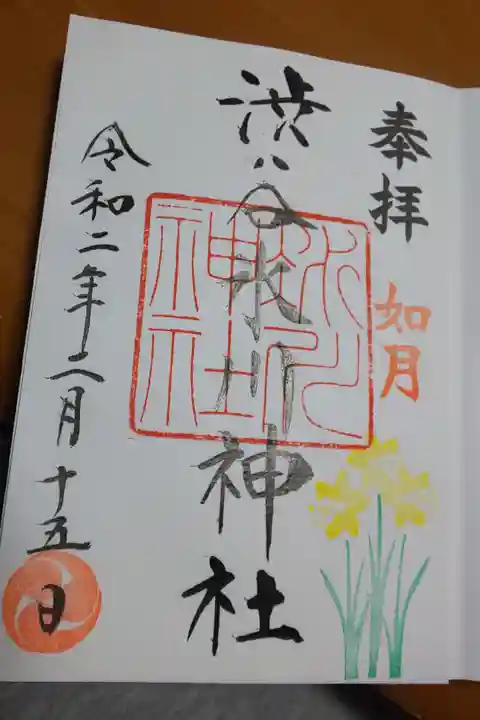 奉拝
如月
渋谷氷川神社
氷川
神社
令和二年二月十五日